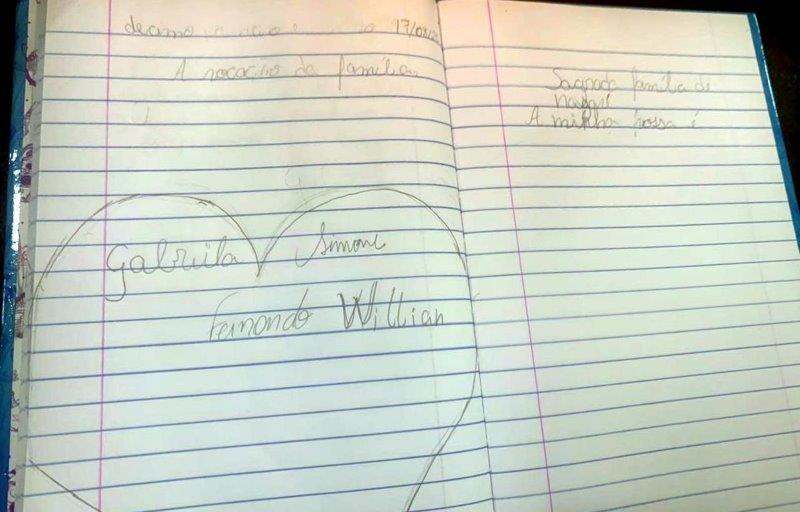 decimo 17/08
A vocação da família
Gabriela Simone
Fernando Willian
Sagrada família de
nazaré
A minha nossa é